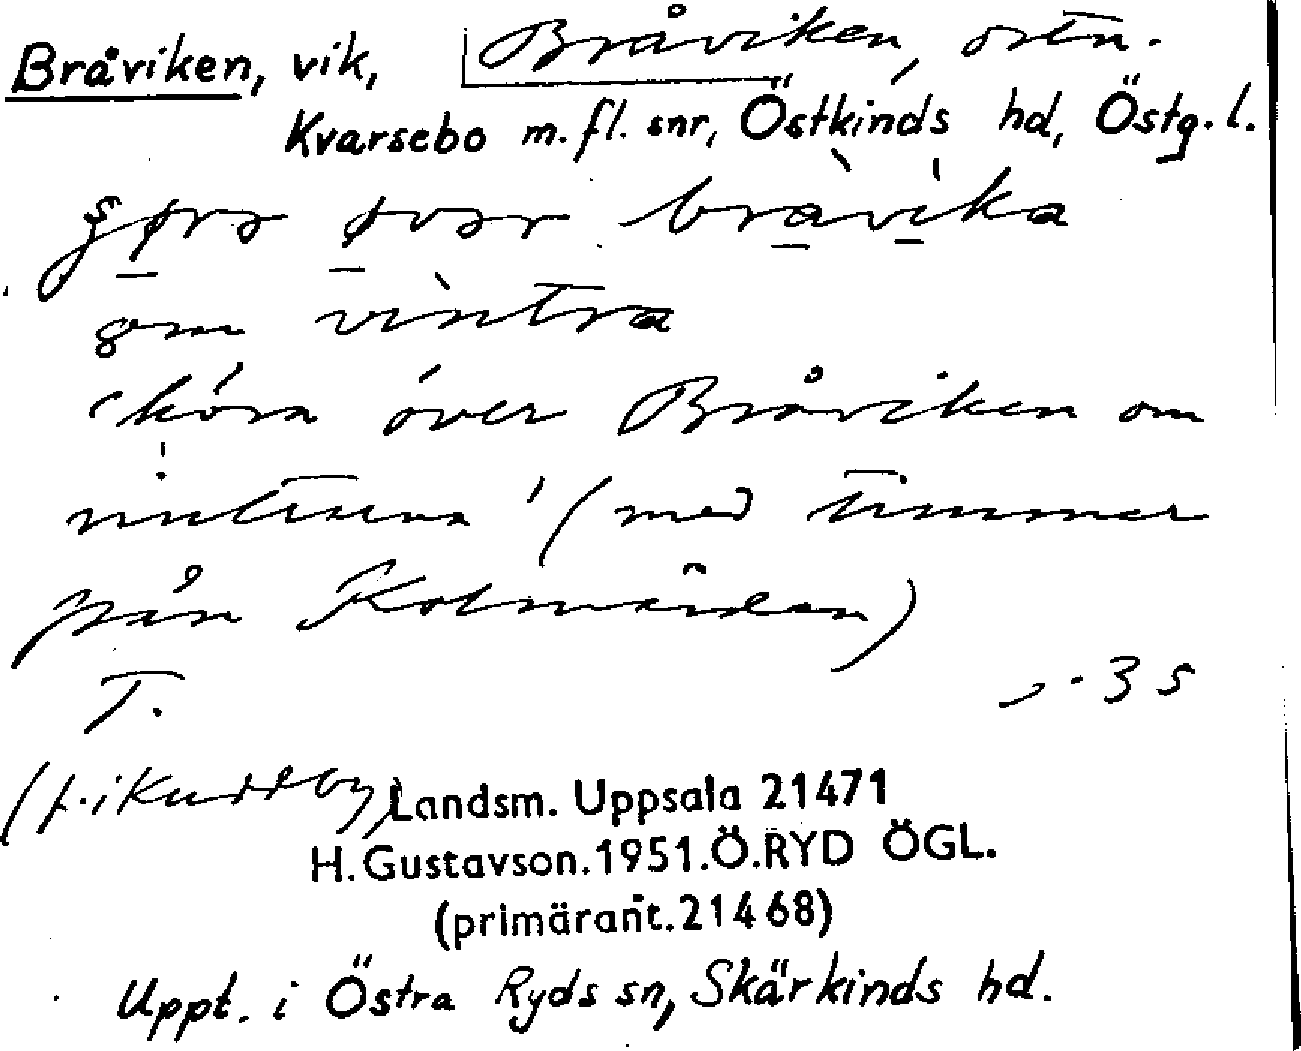 Bråviken, vik, Bråviken, ortn.
Kvarsebo m.fl. snr, Östkinds hd, Östg. l.
över bråvika
om vintra
'köra över Bråviken om
vintrarna' (med timmer
från Kolmården)
T.
(f. i
Landsm. Uppsala 21471
H. Gustavson. 1951. Ö. RYD ÖGL.
(primärant. 21468)
Uppt. i Östra Ryds sn, Skärkinds hd.